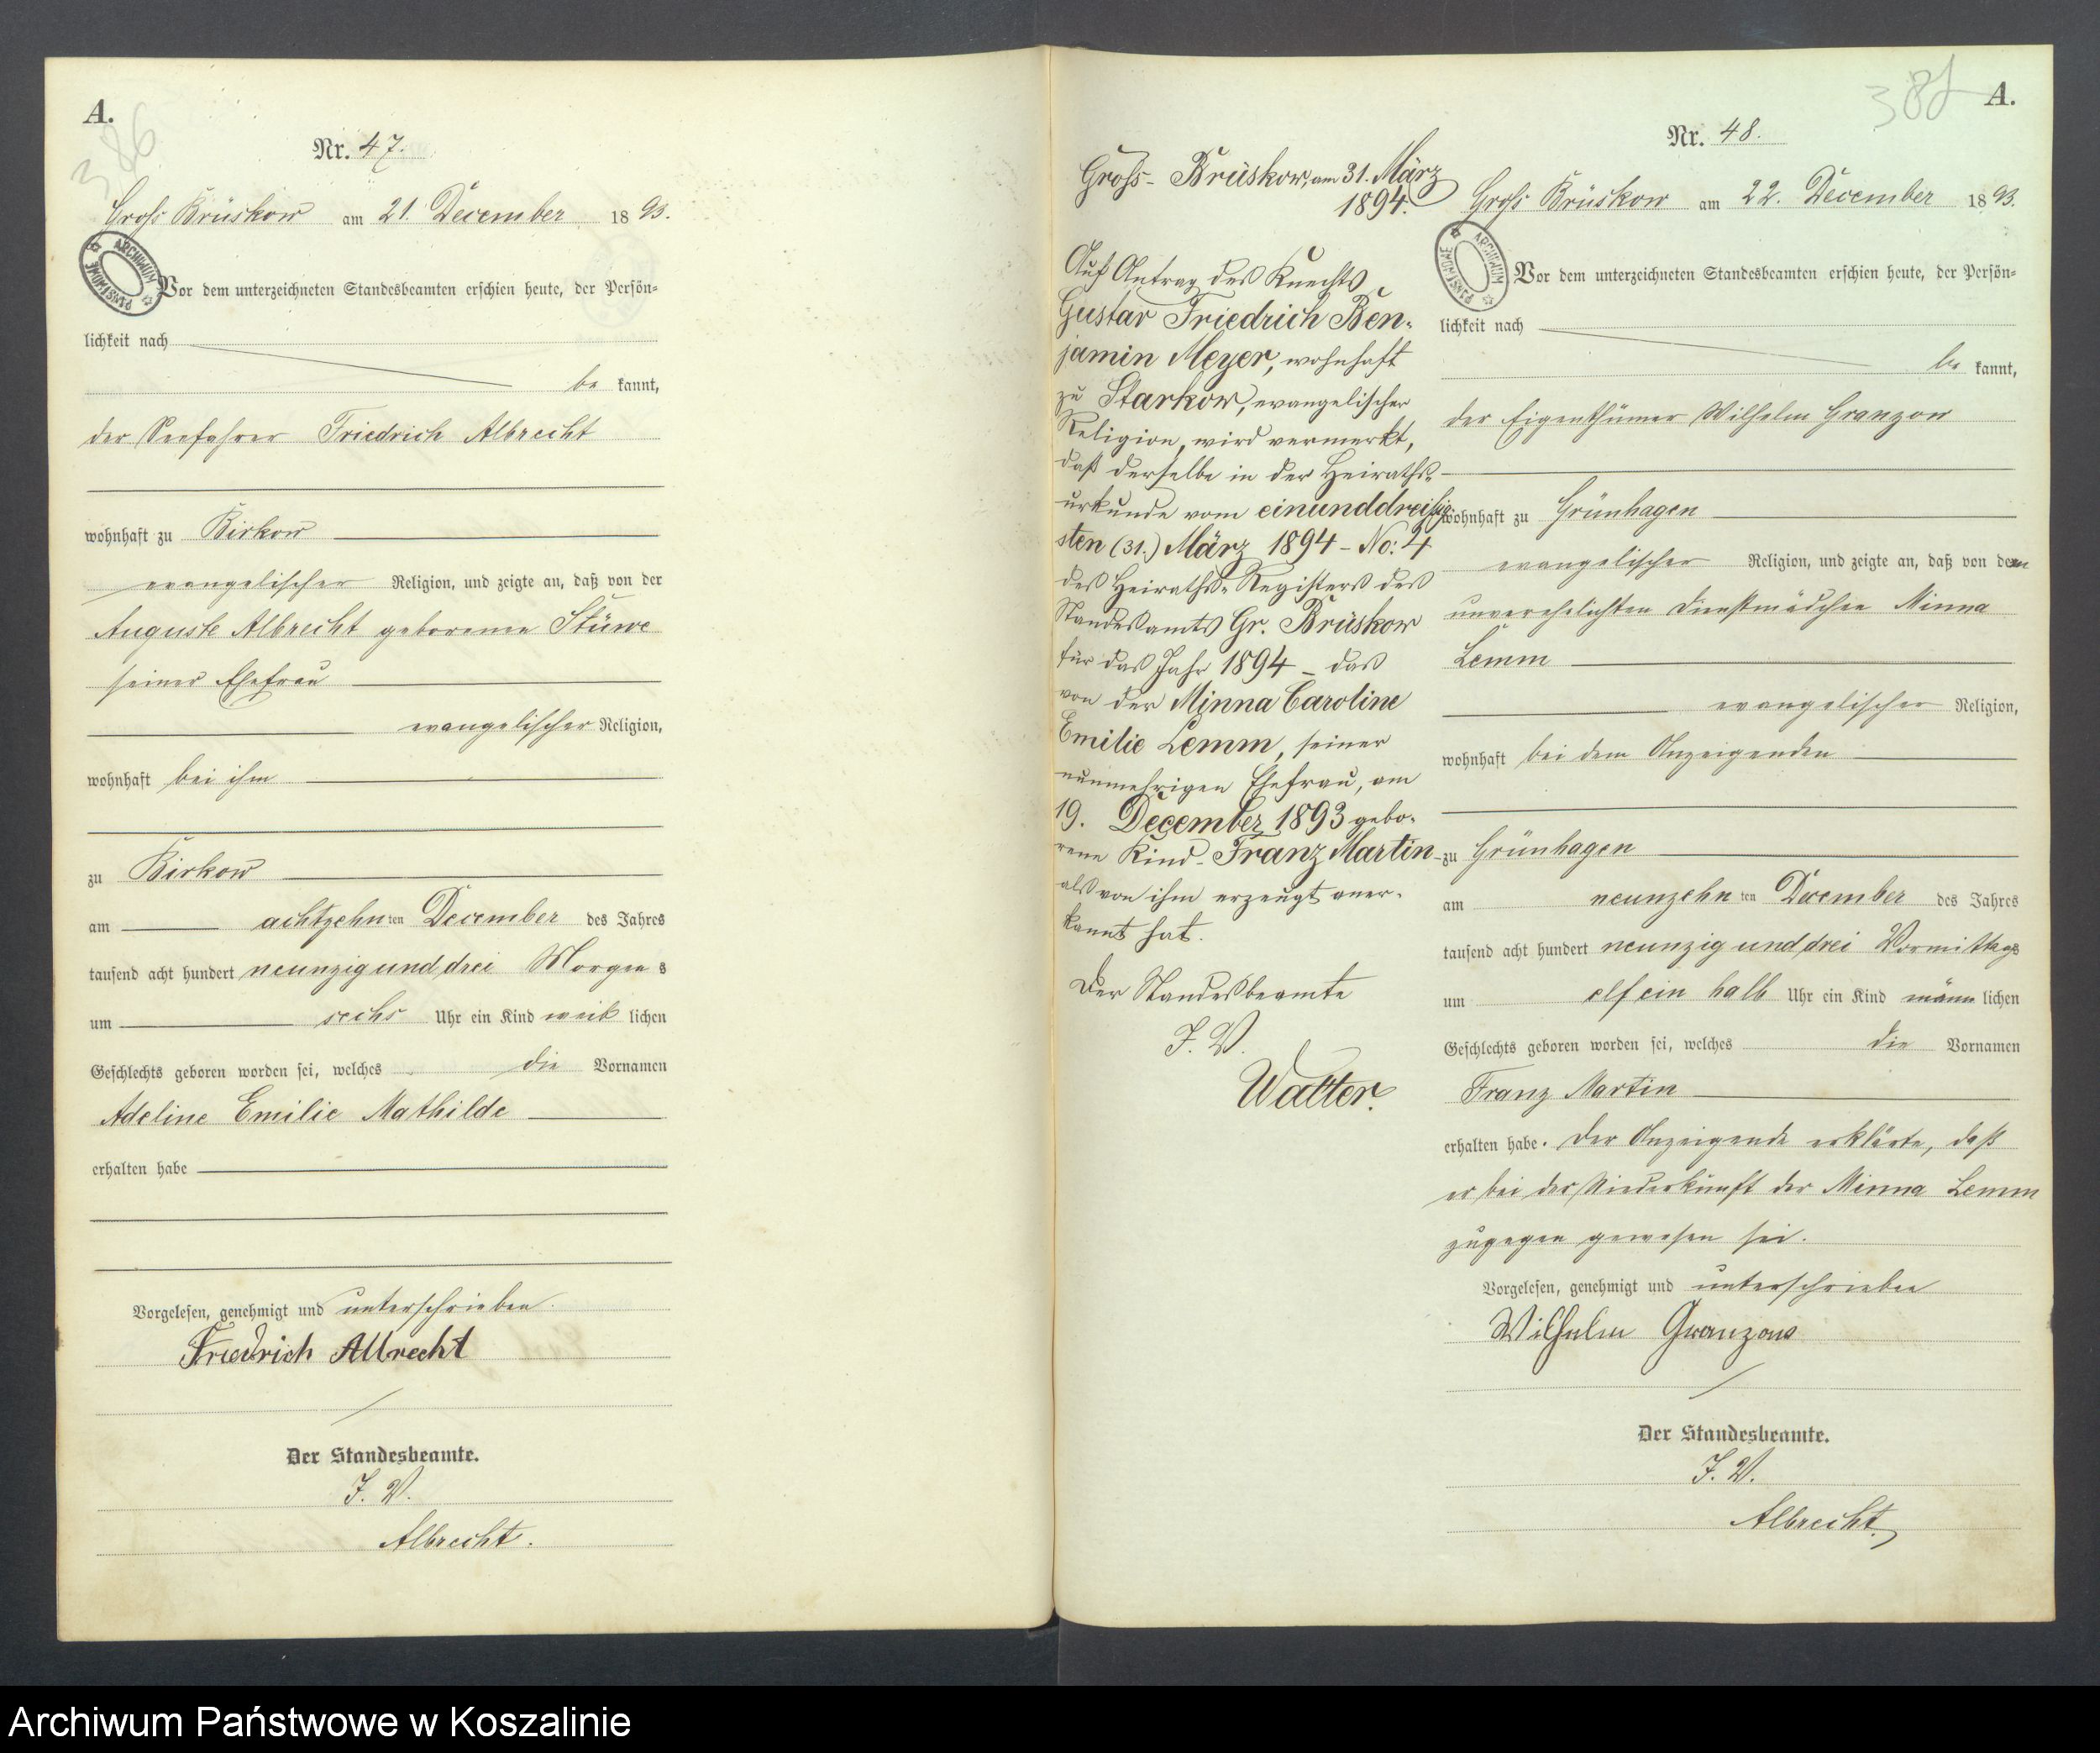 A.
386
Nr. 47.
Gross Brüskow am 21. December 1893.
ARCHIWUM PAŃSTWOWE
Vor dem unterzeichneten Standesbeamten erschien heute, der Persön-
lichkeit nach
be kannt,
der Seefahrer Friedrich Albrecht
wohnhaft zu Birkow
evangelischer Religion, und zeigte an, daß von der
Auguste Albrecht geborenen Stüwe
seiner Ehefrau
evangelischer Religion,
wohnhaft bei ihm
zu Birkow
am achtzehn ten December des Jahres
tausend acht hundert neunzig und drei Morgen s
um sechs Uhr ein Kind weib lichen
Geschlechts geboren worden sei, welches die Vornamen
Adeline Emilie Mathilde
erhalten habe
Vorgelesen, genehmigt und unterschrieben.
Friedrich Albrecht
Der Standesbeamte.
J. V.
Albrecht.
Gross-Brüskow, am 31. März
1894.
Auf Antrag des Knechts
Gustav Friedrich Ben-
jamin Meyer, wohnhaft
zu Starkow, evangelischer
Religion, wird vermerkt,
daß derselbe in der Heiraths-
urkunde vom einunddreißig-
sten (31.) März 1894 - No: 4
des Heiraths-Registers des
Standesamts Gr. Brüskow
für das Jahr 1894 - das
von der Minna Caroline
Emilie Lemm, seiner
nunmehrigen Ehefrau, am
19. December 1893 gebo-
rene Kind - Franz Martin -
als von ihm erzeugt aner-
kannt hat.
Der Standesbeamte
J. V.
Walter.
A.
Nr. 48.
Gross Brüskow am 22. December 1893.
ARCHIWUM PAŃSTWOWE
Vor dem unterzeichneten Standesbeamten erschien heute, der Persön-
lichkeit nach
be kannt,
der Eigenthümer Wilhelm Granzow
wohnhaft zu Grünhagen
evangelischer Religion, und zeigte an, daß von dem
unverehelichten Dienstmädchen Minna
Lemm
evangelischer Religion,
wohnhaft bei dem Anzeigenden
zu Grünhagen
am neunzehn ten December des Jahres
tausend acht hundert neunzig und drei Vormittags
um elf ein halb Uhr ein Kind männ lichen
Geschlechts geboren worden sei, welches die Vornamen
Franz Martin
erhalten habe. Der Anzeigende erklärte, daß
er bei der Niederkunft der Minna Lemm
zugegen gewesen sei.
Vorgelesen, genehmigt und unterschrieben
Wilhelm Granzow
Der Standesbeamte.
J. V.
Albrecht.
Archiwum Państwowe w Koszalinie